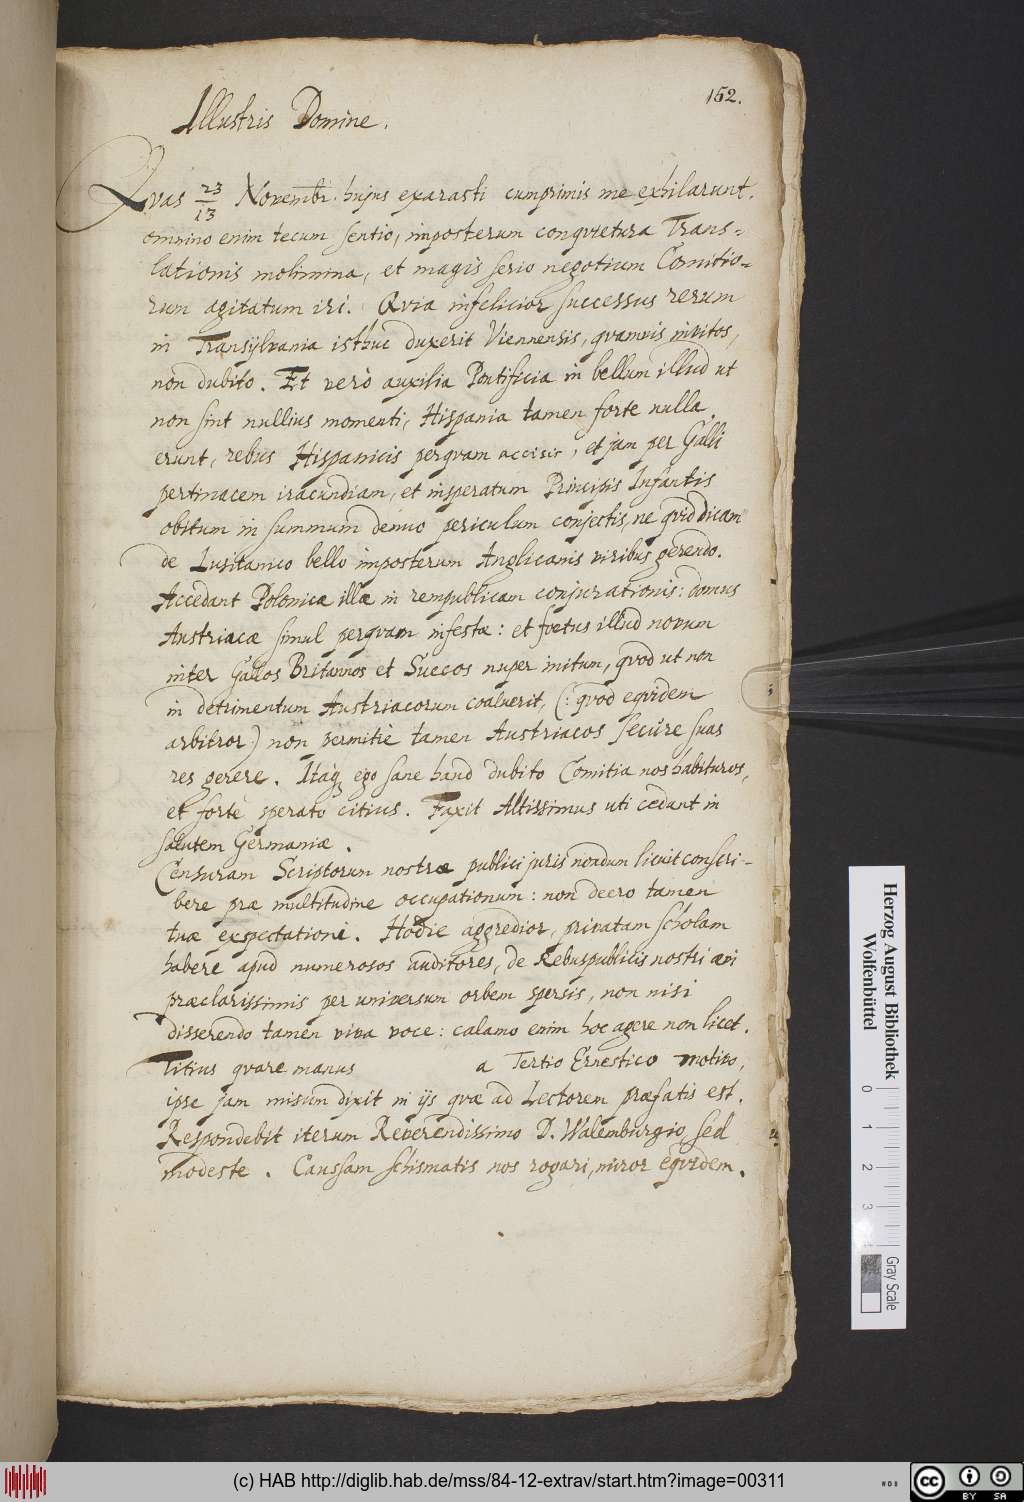 152.
Illustris Domine.
Qvas 23/13 Novembr. hujus exarasti cumprimis me exhilarunt.
omnino enim tecum sentio, imposterum conqvietura Trans=
lationis molimina, et magis serio negotium Comitio=
rum agitatum iri. Qvia infelicior successus rerum
in Transylvania isthuc duxerit Viennensis, qvamvis invitos,
non dubito. Et verò auxilia Pontificia in bellum illud ut
non sint nullius momenti, Hispania tamen forte nulla
erunt, rebus Hispanicis perqvam accisis, et jam per Galli
pertinacem iracundiam, et insperatum Principis Infantis
obitum in summum denuo periculum conjectis, ne qvid dicam
de Lusitanico bello imposterum Anglicanis viribus gerendo.
Accedant Polonicæ illæ in rempublicam conjurationis: domus
Austriacæ simul perqvam infestæ: et foetus illud novum
inter Gallos Britannos et Suecos nuper initum, qvod ut non
in detrimentum Austriacorum coaluerit, (: qvod eqvidem
arbitror) non permitiè tamen Austriacos secure suas
res gerere. Itaq ego sane haud dubito Comitia nos habituros,
et forte sperato citius. Faxit Altissimus uti cedant in
salutem Germaniæ.
Censuram Scriptorum nostræ publici juris nondum licuit conscri-
bere præ multitudine occupationum: non deero tamen
tuæ expectationi. Hodie aggredior, privatam scholam
habere apud numerosos auditores, de Rebuspublicis nostri ævi
præclarissimis per universum orbem spersis, non nisi
disserendo tamen viva voce: calamo enim hoc agere non licet.
Titius qvare manus a Tertio Ernestico motivo,
ipse jam misum dixit in ijs qvæ ad Lectorem præfatis est.
Respondebit iterum Reverendissimo D. Walemburgio, sed
modeste. Caussam schismatis nos rogari, miror eqvidem.
Herzog August Bibliothek
Wolfenbüttel
0 1 2 3 4
Gray Scale
(c) HAB http://diglib.hab.de/mss/84-12-extrav/start.htm?image=00311
cc BY SA